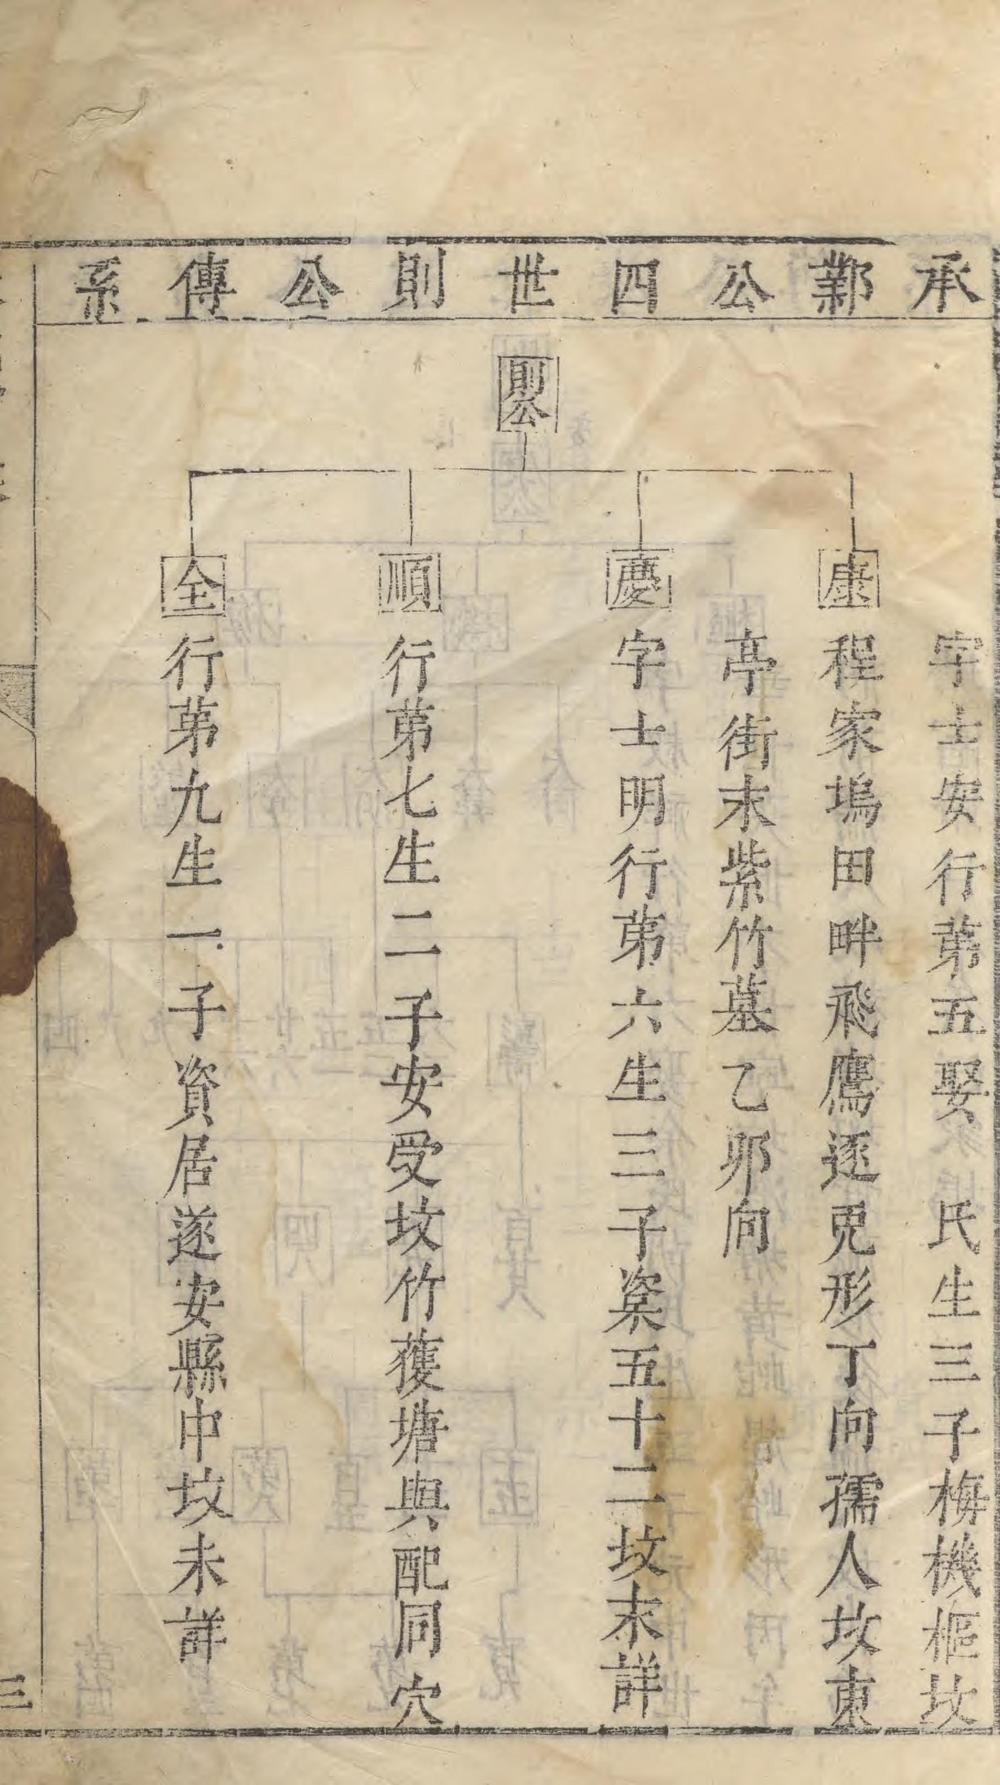 承鄴公四世則公傳系
則公
康
字士安行第五娶 氏生三子梅機樞坟
程家塢田畔飛鷹逐兎形丁向孺人坟東
亭街末紫竹墓乙卯向
慶
字士明行第六生三子粢五十二坟未詳
順
行第七生二子安受坟竹蒦塘與配同穴
全
行第九生一子資居遂安縣中坟未詳
三